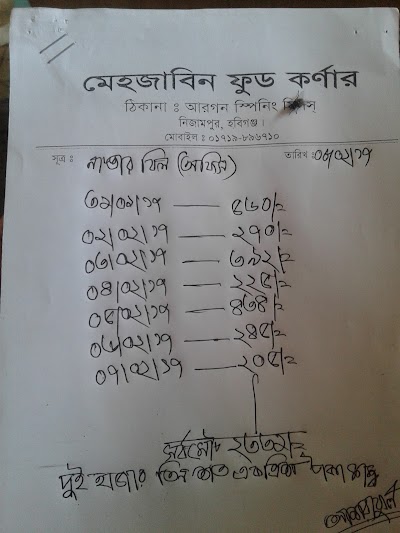 মেহজাবিন ফুড কর্ণার
ঠিকানা ঃ আরগন স্পিনিং মিলস্
নিজামপুর, হবিগঞ্জ।
মোবাইল ঃ ০১৭১৯-৮৯৬৭১০
সূত্র ঃ নাস্তার বিল (অফিস) তারিখ ঃ ০৮/০২/১৭
৩১/০১/১৭ — ৫৬০/=
০২/০২/১৭ — ২৭০/=
০৩/০২/১৭ — ৩৯২/=
০৪/০২/১৭ — ২২৫/=
০৫/০২/১৭ — ৪৩৪/=
০৬/০২/১৭ — ২৪৫/=
০৭/০২/১৭ — ২০৫/=
সর্বমোট ২৩৩১/=
দুই হাজার তিন শত একত্রিশ টাকা মাত্র